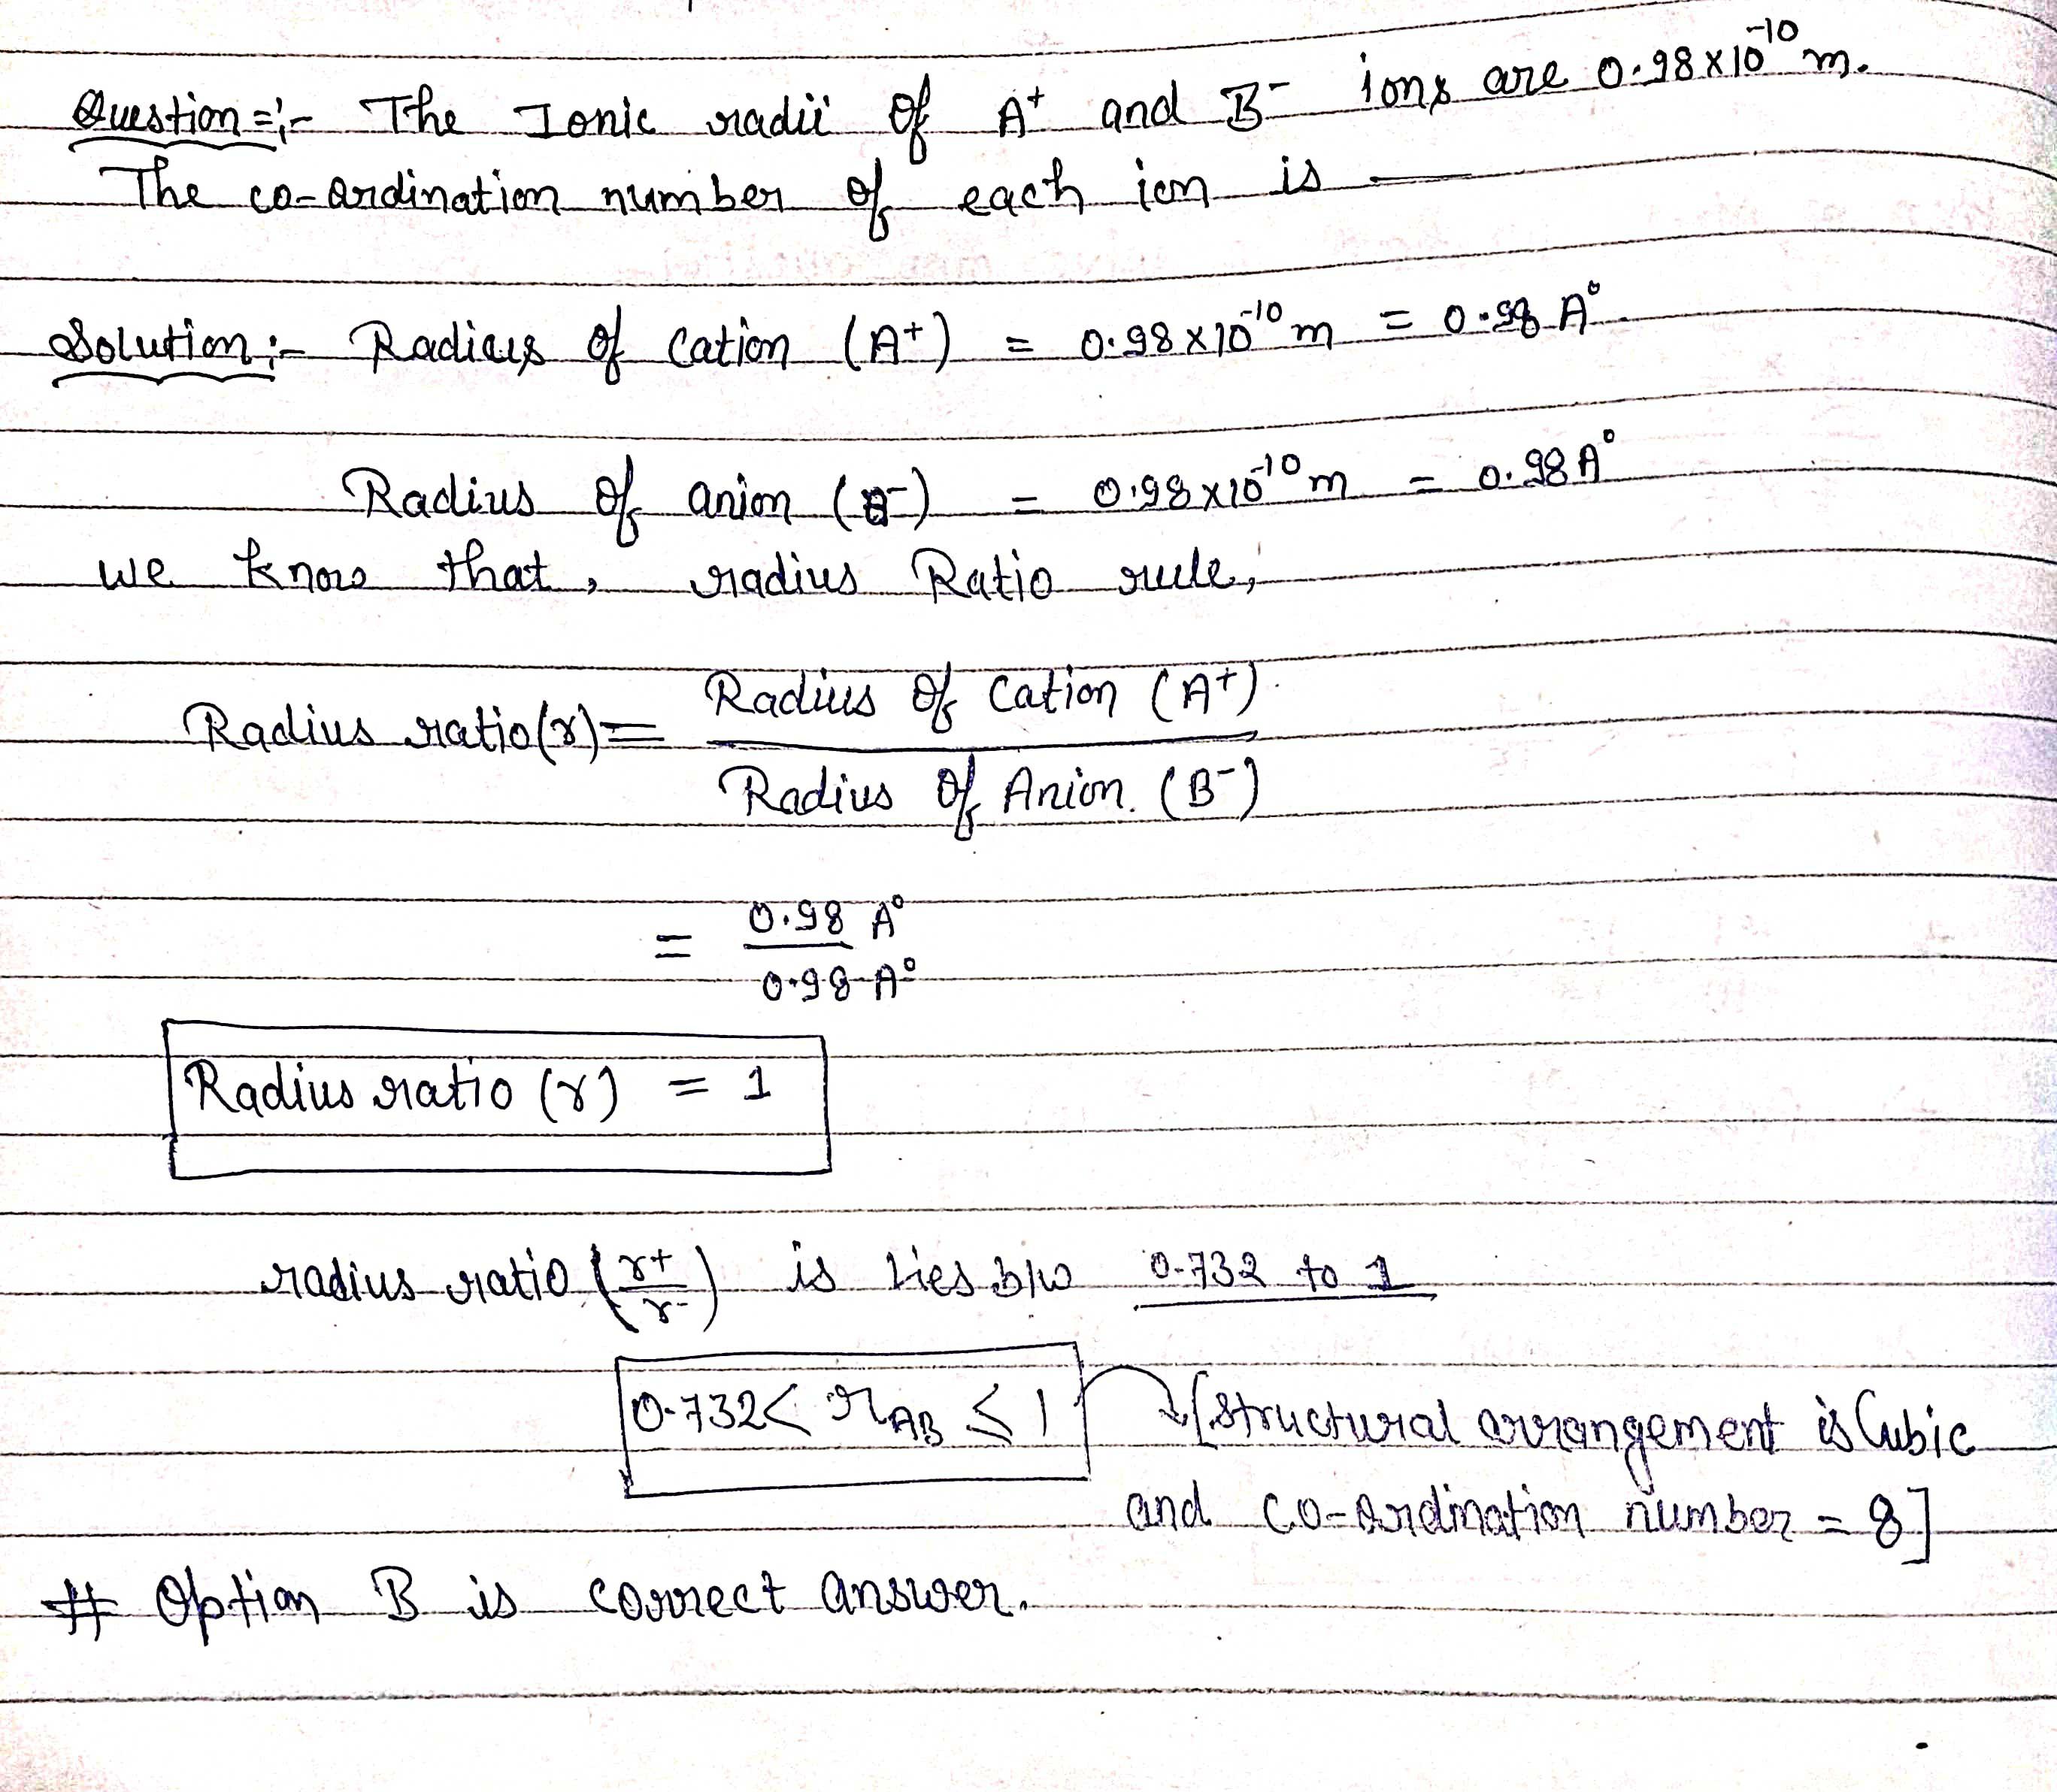 Question =:- The Ionic radii of A⁺ and B⁻ ions are 0.98 x 10⁻¹⁰ m.
The co-ordination number of each ion is —
Solution:- Radius of Cation (A⁺) = 0.98 x 10⁻¹⁰ m = 0.98 A°.
Radius of anion (B⁻) = 0.98 x 10⁻¹⁰ m = 0.98 A°
we know that, radius Ratio rule,
Radius ratio (r) = Radius of Cation (A⁺)
Radius of Anion. (B⁻)
= 0.98 A°
0.98 A°
Radius ratio (r) = 1
radius ratio (r+/r-) is lies b/w 0.732 to 1
0.732 < r_AB ≤ 1 [structural arrangement is Cubic
and co-ordination number = 8]
# Option B is correct answer.